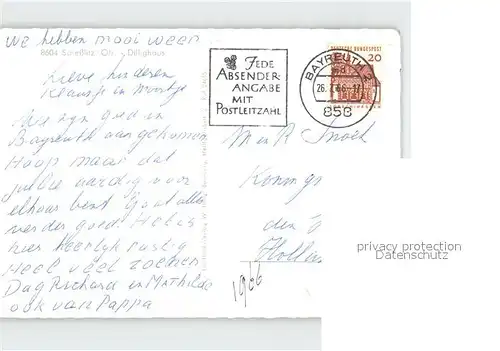 We hebben mooi weer
8604 Scheßlitz Ofr. Dillighaus
Lieve kinderen
Klaasje en Montje
Wij zijn goed in
Bayreuth aangekomen
Hoop maar dat
jullie aardig voor
elkaar bent Gaat alles
verder goed. Het is
hier heerlijk rustig
Heel veel zoenen
Dag Richard en Mathilde
ook van Pappa
JEDE
ABSENDER-
ANGABE
MIT
POSTLEITZAHL
BAYREUTH 2
26.7.66-17
858
DEUTSCHE BUNDESPOST
20
Konings
den
Hollan
1966
privacy protection
Datenschutz